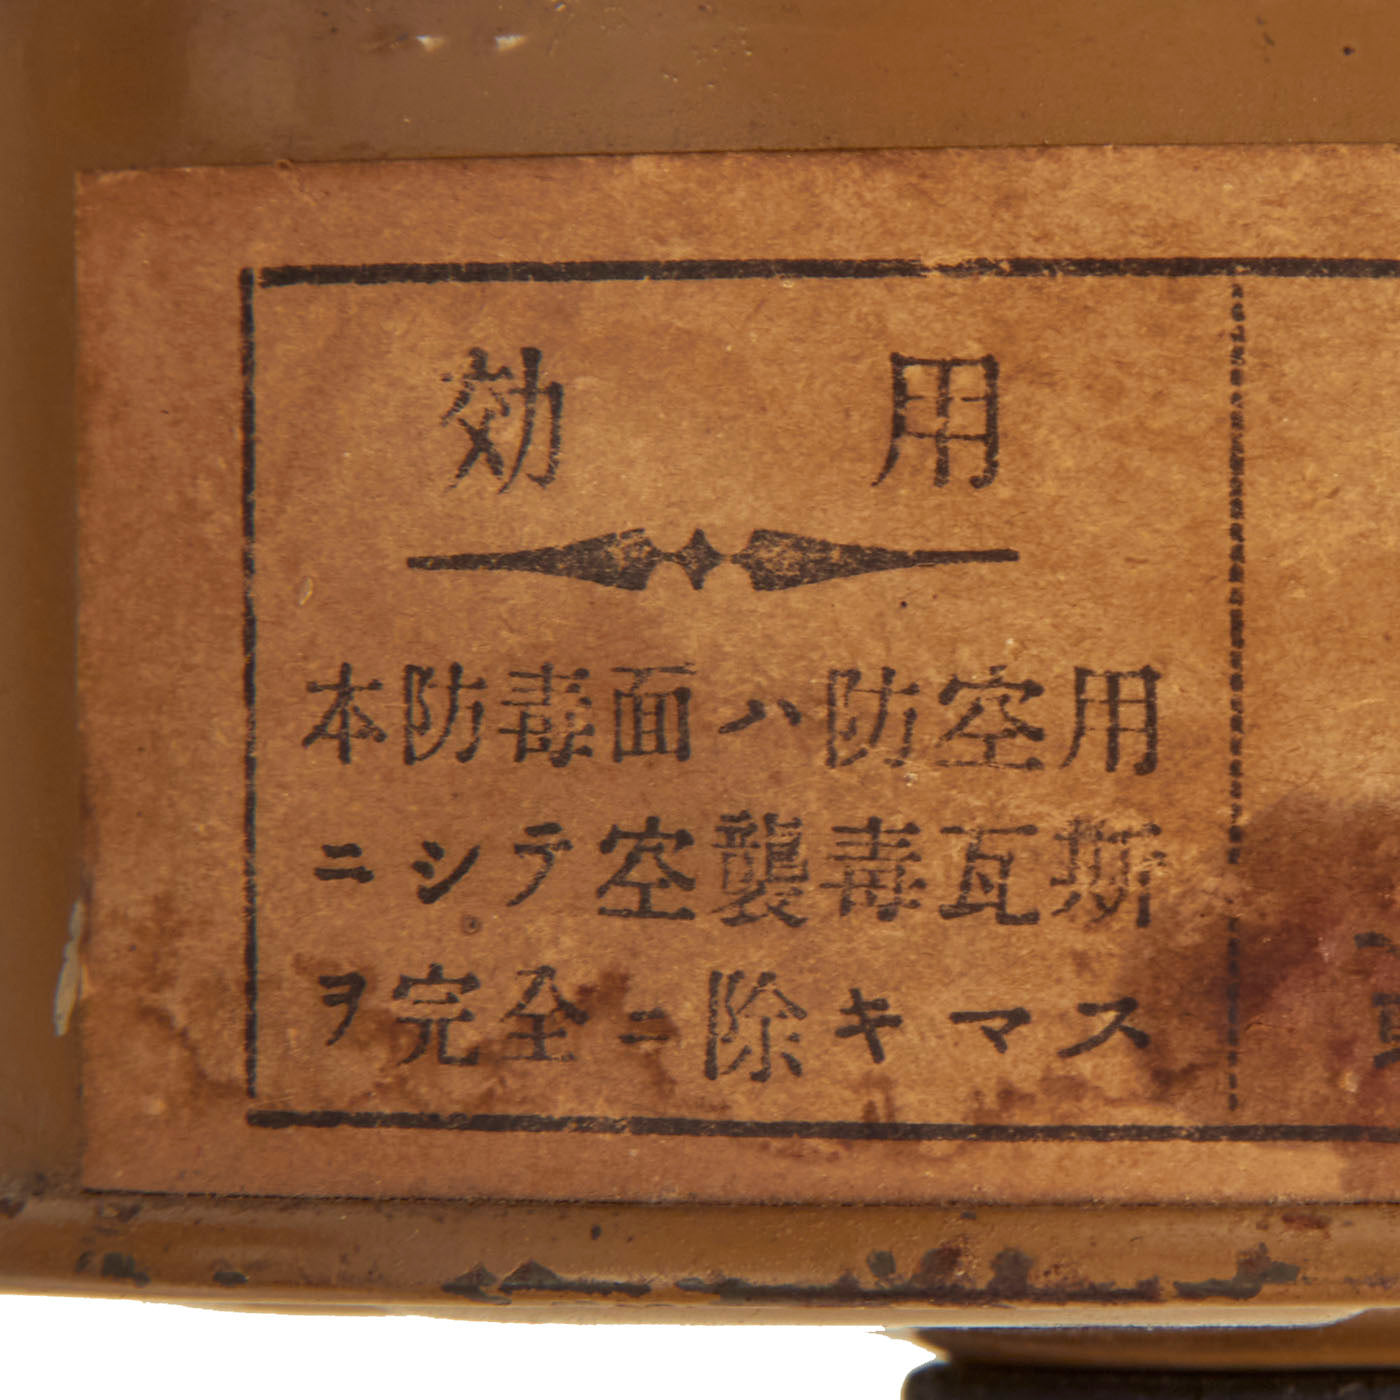 効用
本防毒面ハ防空用
ニシテ空襲毒瓦斯
ヲ完全ニ除キマス